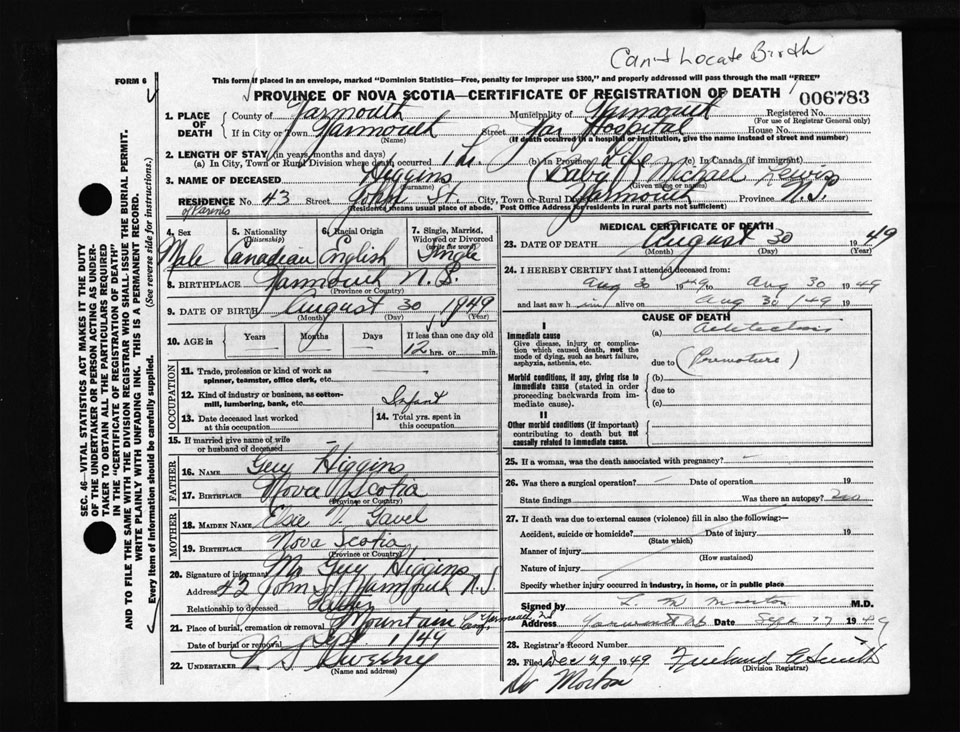 Can't Locate Birth
FORM 6
This form if placed in an envelope, marked "Dominion Statistics—Free, penalty for improper use $300," and properly addressed will pass through the mail "FREE"
PROVINCE OF NOVA SCOTIA—CERTIFICATE OF REGISTRATION OF DEATH
006783
1. PLACE OF DEATH
County of Yarmouth Municipality of Yarmouth Registered No.
(For use of Registrar General only)
If in City or Town Yarmouth Street Yar Hospital House No.
(Name) (If death occurred in a hospital or institution, give the name instead of street and number)
2. LENGTH OF STAY (in years, months and days)
(a) In City, Town or Rural Division where death occurred (b) in Province Life (c) In Canada (if immigrant)
3. NAME OF DECEASED Higgins (Baby) Michael Lewis
(Surname) (Given name or names)
RESIDENCE No. 43 Street John St. City, Town or Rural Div. Yarmouth Province N.S.
of Parents (Residence means usual place of abode. Post Office Address for residents in rural parts not sufficient)
4. Sex Male
5. Nationality (Citizenship) Canadian
6. Racial Origin English
7. Single, Married, Widowed or Divorced (write the word) Single
8. BIRTHPLACE Yarmouth N.S.
(Province or Country)
9. DATE OF BIRTH August 30 1949
(Month) (Day) (Year)
10. AGE in Years Months Days If less than one day old
12 hrs. or min.
OCCUPATION
11. Trade, profession or kind of work as spinner, teamster, office clerk, etc.
12. Kind of industry or business, as cotton-mill, lumbering, bank, etc. Infant
13. Date deceased last worked at this occupation
14. Total yrs. spent in this occupation
15. If married give name of wife or husband of deceased
FATHER
16. NAME Guy Higgins
17. BIRTHPLACE Nova Scotia
(Province or Country)
MOTHER
18. MAIDEN NAME Elsie V. Gavel
19. BIRTHPLACE Nova Scotia
(Province or Country)
20. Signature of informant Mr Guy Higgins
Address 43 John St. Yarmouth N.S.
Relationship to deceased Father
21. Place of burial, cremation or removal Mountain Cem Yarmouth N.S.
Date of burial or removal Sept 1/49
22. UNDERTAKER V S Sweeny
(Name and address)
MEDICAL CERTIFICATE OF DEATH
23. DATE OF DEATH August 30 1949
(Month) (Day) (Year)
24. I HEREBY CERTIFY that I attended deceased from:
Aug 30 1949 to Aug 30 1949
and last saw him alive on Aug 30 1949 19
CAUSE OF DEATH
I
Immediate cause
Give disease, injury or complication which caused death, not the mode of dying, such as heart failure, asphyxia, asthenia, etc.
(a) Atelectasis
due to (Premature)
Morbid conditions, if any, giving rise to immediate cause (stated in order proceeding backwards from immediate cause).
(b)
due to
(c)
II
Other morbid conditions (if important) contributing to death but not causally related to immediate cause.
25. If a woman, was the death associated with pregnancy?
26. Was there a surgical operation? Date of operation 19
State findings Was there an autopsy?
27. If death was due to external causes (violence) fill in also the following:—
Accident, suicide or homicide? Date of injury 19
(State which)
Manner of injury
(How sustained)
Nature of injury
Specify whether injury occurred in industry, in home, or in public place
Signed by L. M. Morton M.D.
Address Yarmouth N.S. Date Sept 17 1949
28. Registrar's Record Number
29. Filed Dec 29 1949 Freeland A Smith
(Division Registrar)
Dr Morton
SEC. 46—VITAL STATISTICS ACT MAKES IT THE DUTY
OF THE UNDERTAKER OR PERSON ACTING AS UNDER-
TAKER TO OBTAIN ALL THE PARTICULARS REQUIRED
IN THE "CERTIFICATE OF REGISTRATION OF DEATH"
AND TO FILE THE SAME WITH THE DIVISION REGISTRAR WHO SHALL ISSUE THE BURIAL PERMIT.
WRITE PLAINLY WITH UNFADING INK. THIS IS A PERMANENT RECORD.
Every item of information should be carefully supplied. (See reverse side for instructions.)